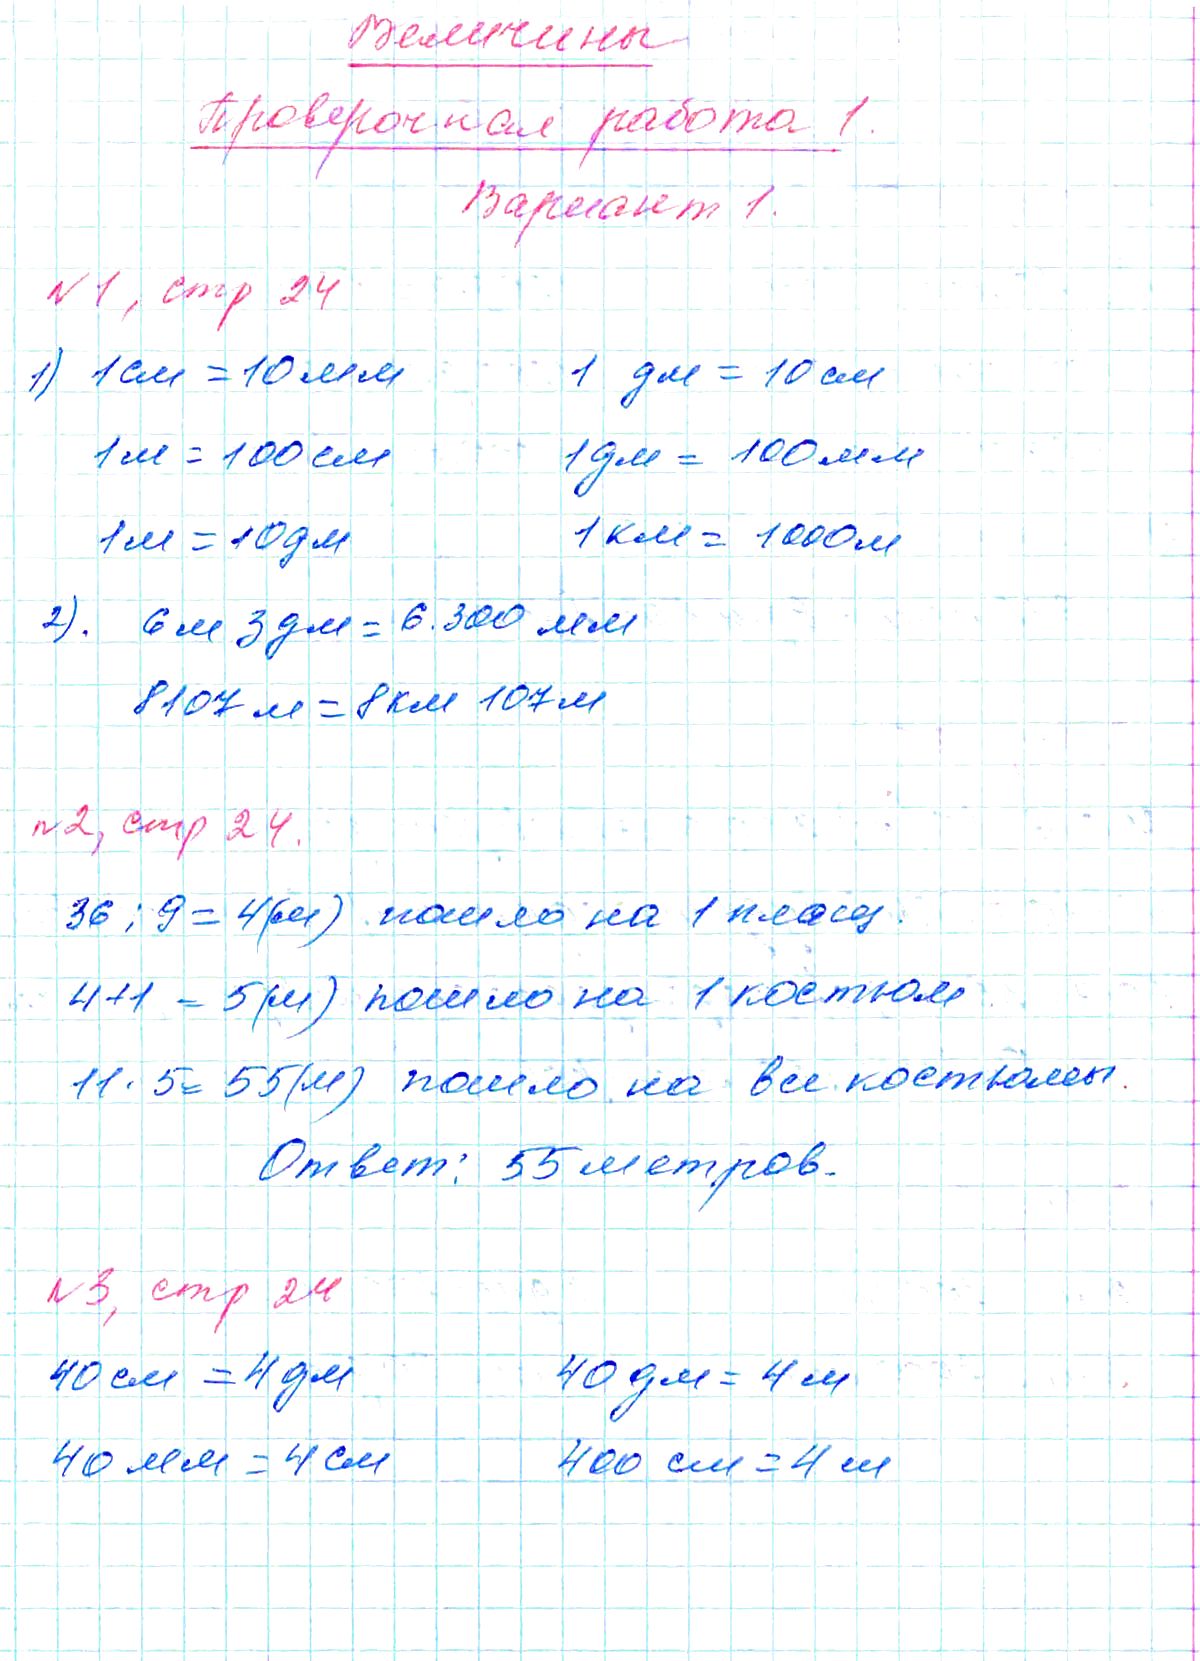 Величины
Проверочная работа 1.
Вариант 1.
№1, стр 24
1) 1см = 10мм 1 дм = 10см
1м = 100см 1дм = 100мм
1м = 10дм 1км = 1000м
2). 6м 3дм = 6.300 мм
8107м = 8км 107м
№2, стр 24.
36 : 9 = 4(м) пошло на 1 плащ.
4+1 = 5(м) пошло на 1 костюм
11 · 5 = 55(м) пошло на все костюмы.
Ответ: 55 метров.
№3, стр 24
40см = 4дм 40дм = 4м
40мм = 4см 400 см = 4м